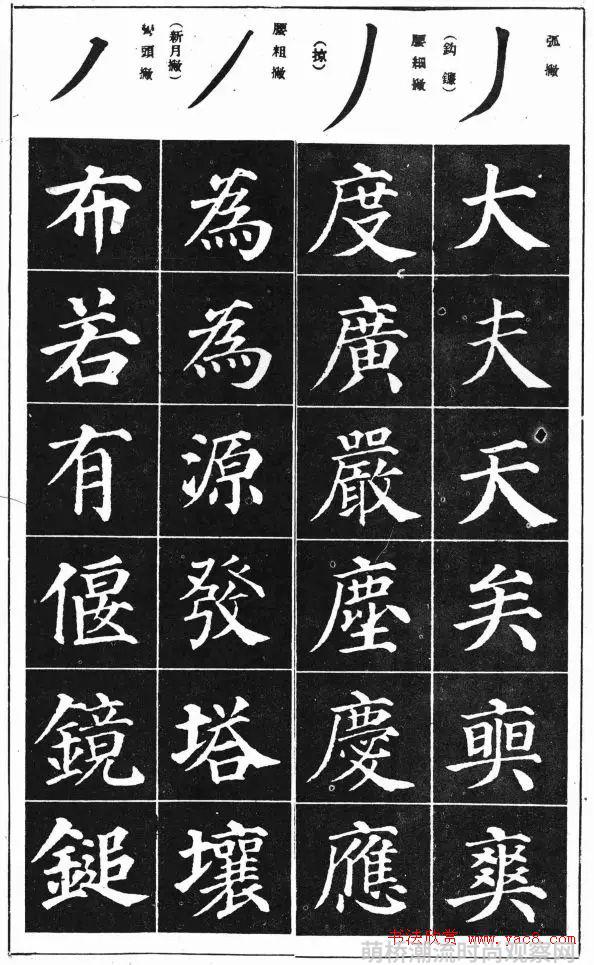 弧撇
(鈎鐮)
大夫天矣
爽
腰細撇
(掠)
度廣嚴塵慶應
腰粗撇
(新月撇)
為為源發塔壤
彎頭撇
布若有偃鏡鎚
书法欣赏 www.yac8.com
萌桥潮流时尚观察网